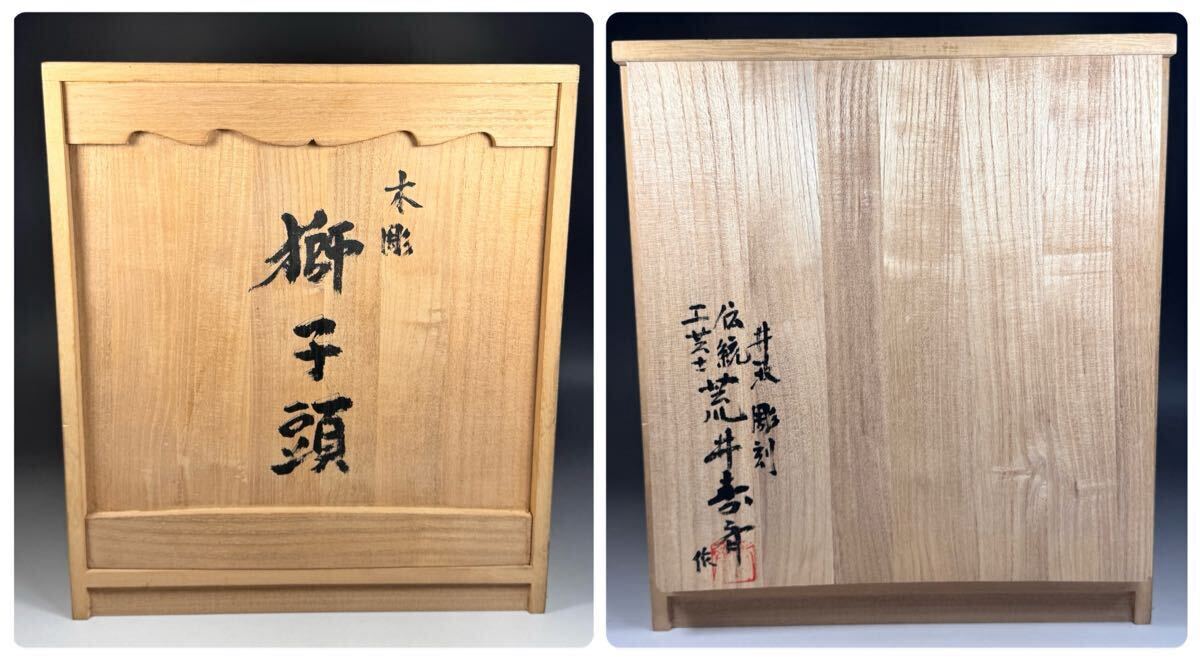 木彫
獅子頭
井波彫刻
伝統
工芸士
荒井寿斉
作